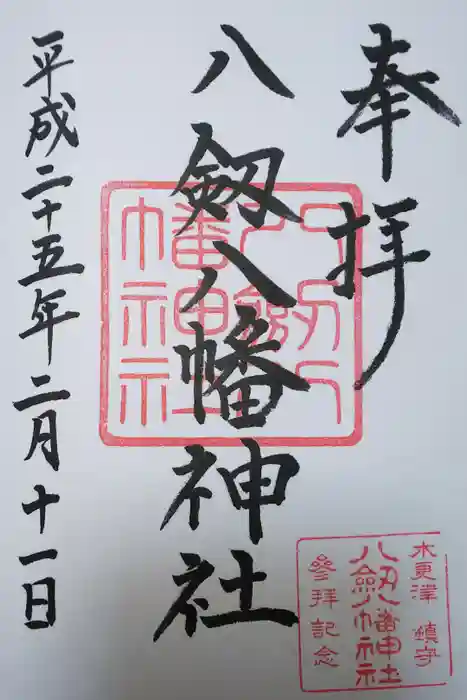 奉拝
八剱八幡神社
平成二十五年二月十一日
八剱八幡神社
木更津 鎮守
八劔八幡神社
參拜記念